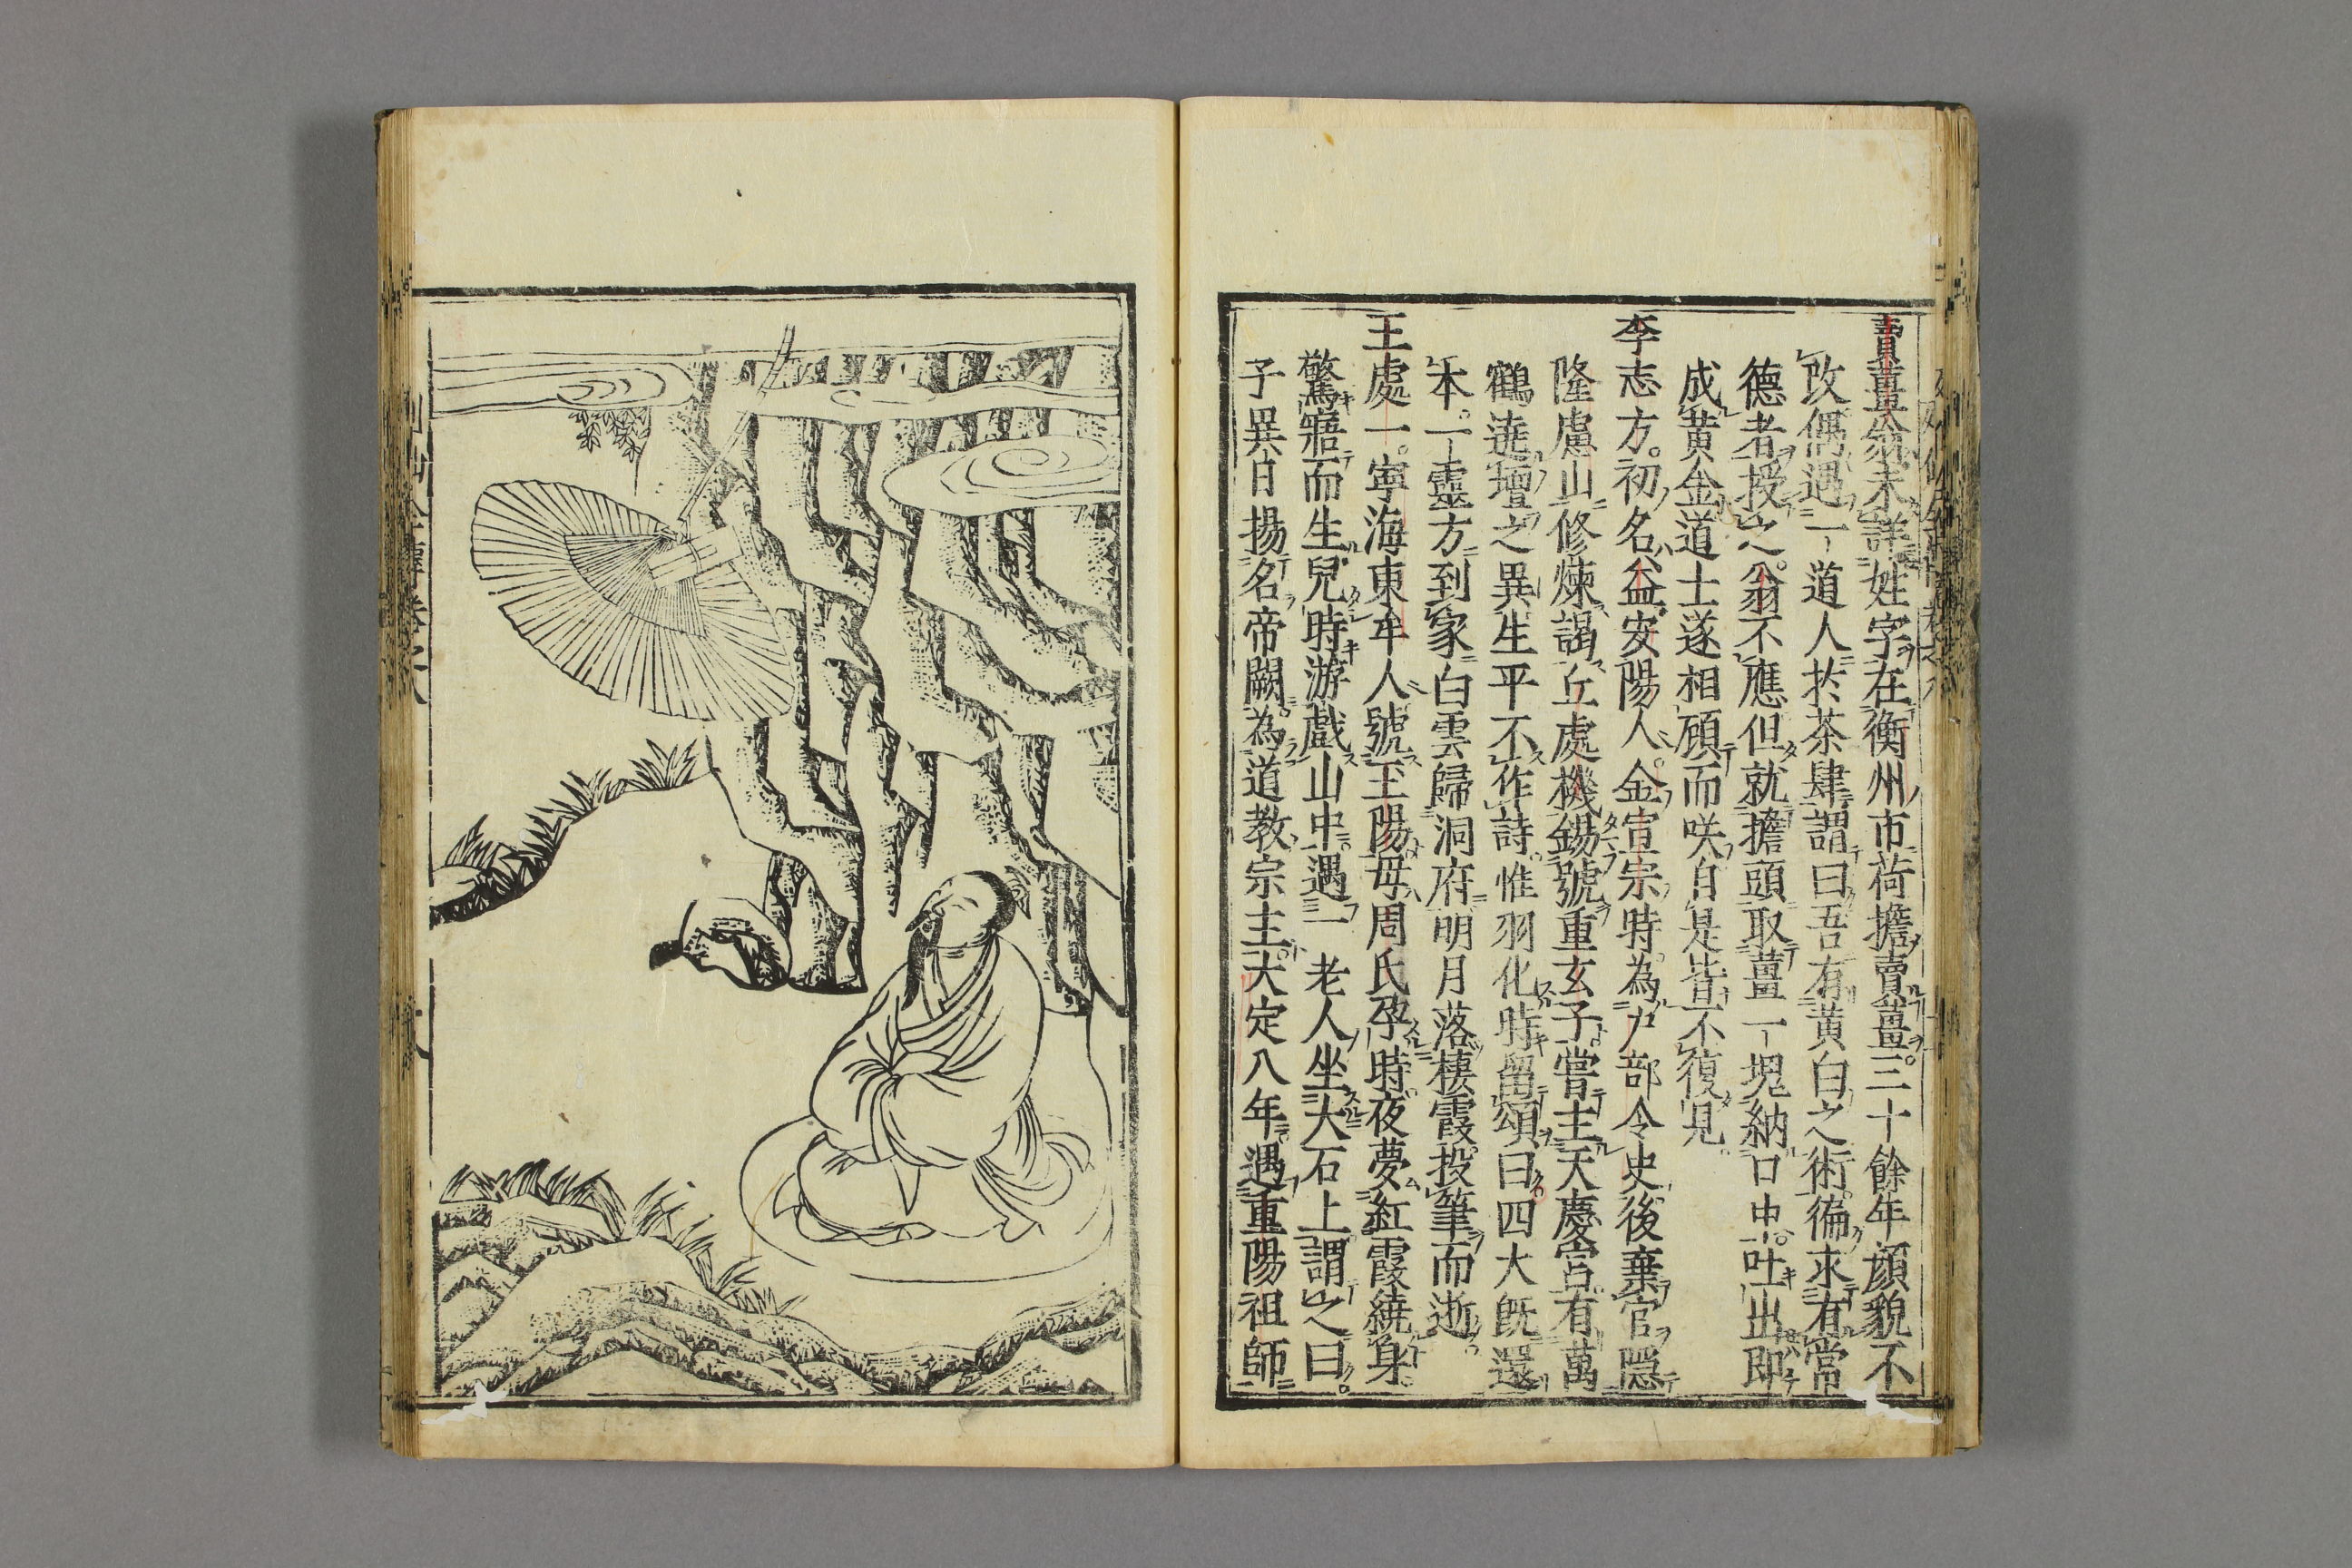 賣薑翁未詳姓字在衡州市荷擔賣薑三十餘年顔貌不
改偶遇一道人於茶肆謂曰吾有黃白之術徧求有常
德者授之翁不應但就擔頭取薑一塊納口中吐出即
成黃金道士遂相顧而咲自是皆不復見
李志方初名益安陽人金宣宗時為戸部令史後棄官隠
隆慮山修煉謁丘處機錫號重玄子嘗主天慶宮有萬
鶴遶壇之異生平不作詩惟羽化時留頌曰四大旣還
本一靈方到家白雲歸洞府明月落棲霞投筆而逝
王處一寧海東牟人號玉陽母周氏孕時夜夢紅霞繞身
驚寤而生兒時游戲山中遇一老人坐大石上謂之曰
子異日揚名帝闕為道教宗主大定八年遇重陽祖師